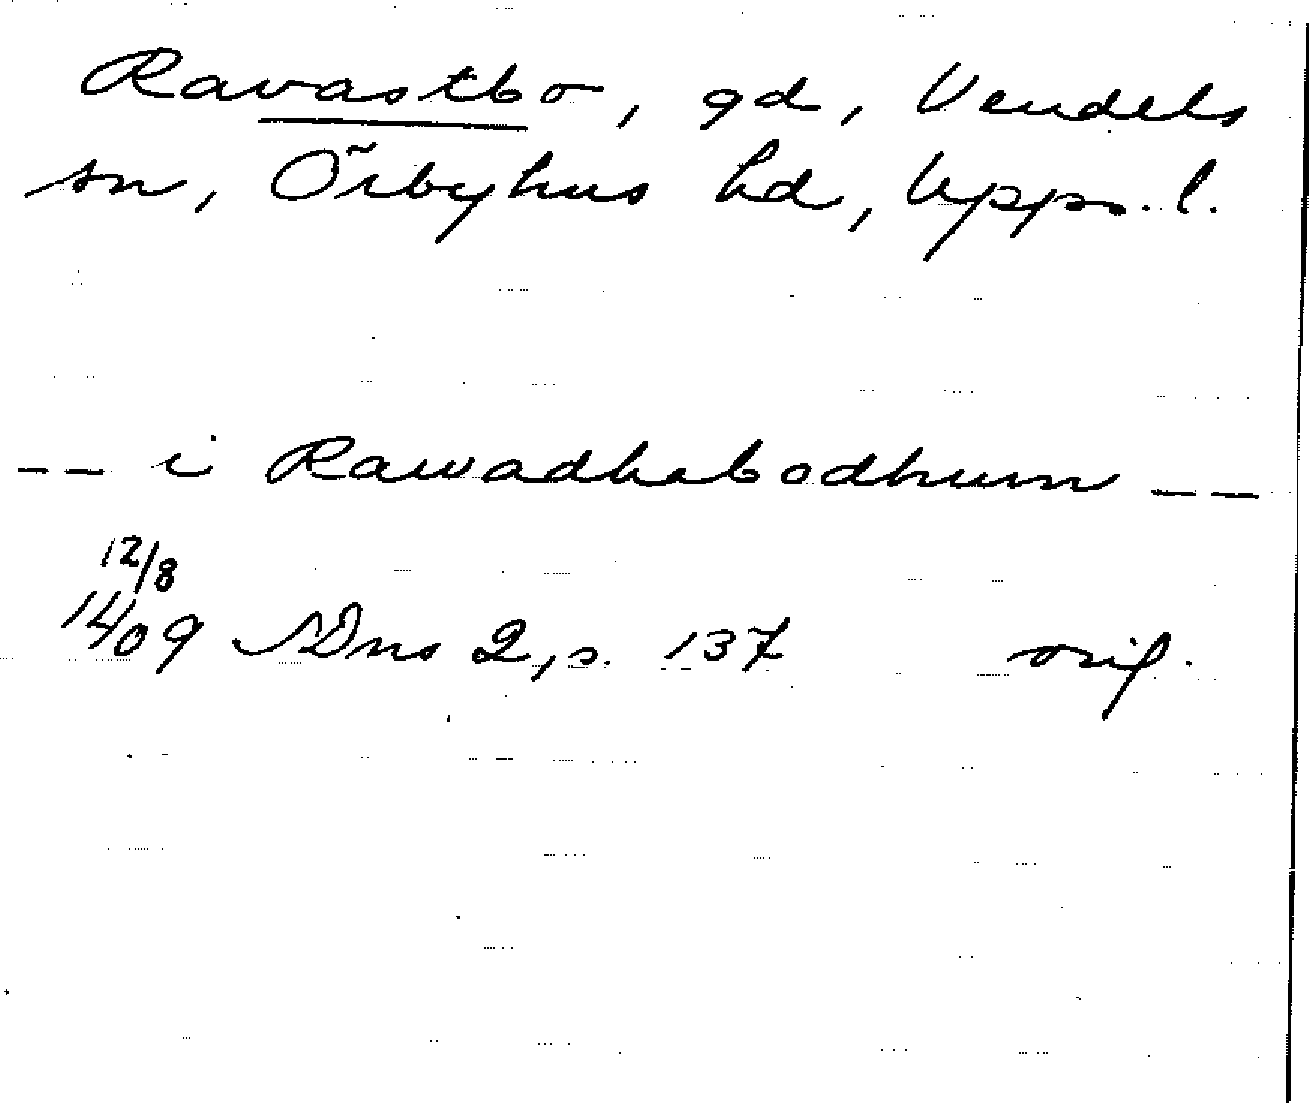 Ravastbo, gd, Vendels
sn, Örbyhus hd, Upps. l.
-- i Rawadhabodhum --
12/8
1409 SDns 2, s. 137 orig.